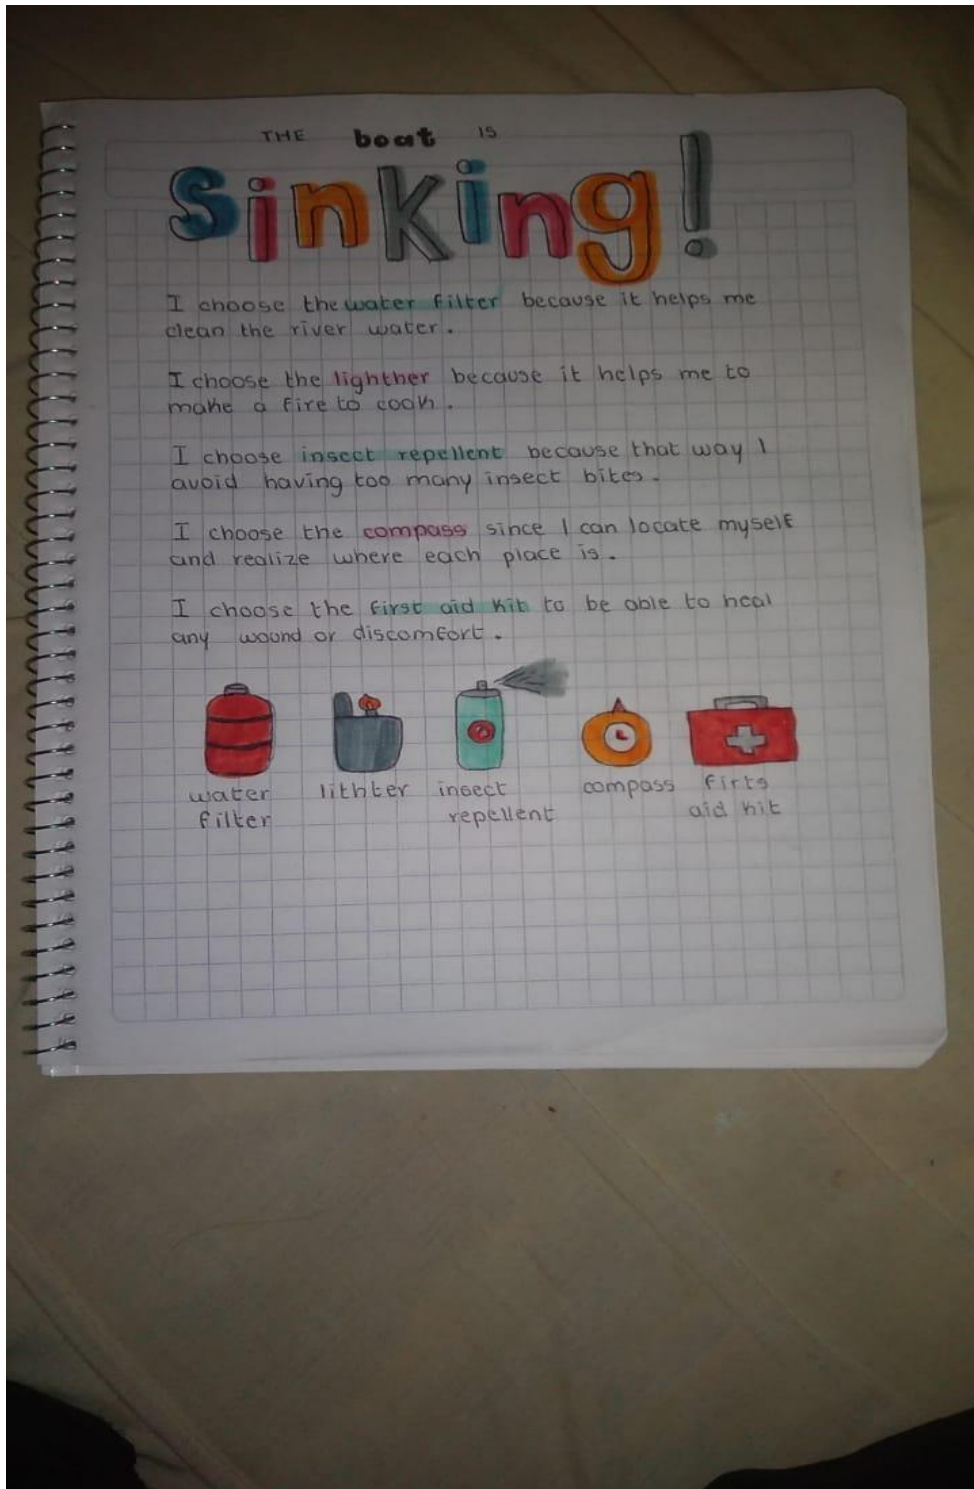 THE boat IS
sinking!
I choose the water filter because it helps me
clean the river water.
I choose the lighther because it helps me to
make a fire to cook.
I choose insect repellent because that way I
avoid having too many insect bites.
I choose the compass since I can locate myself
and realize where each place is.
I choose the first aid kit to be able to heal
any wound or discomfort.
water lithter insect compass firts
filter repellent aid kit